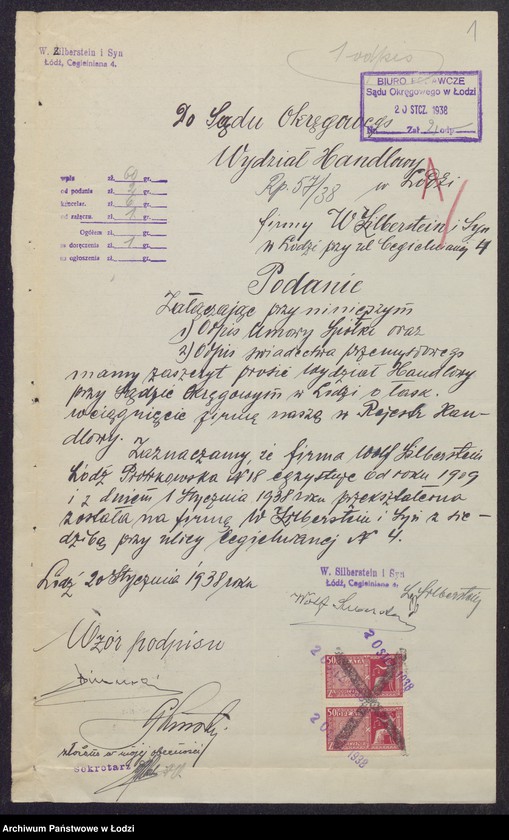 1
W. Silberstein i Syn
Łódź, Cegielniana 4.
1 odpis
BIURO PODAWCZE
Sądu Okręgowego w Łodzi
20 STCZ. 1938
Nr. Zał. 2
Do Sądu Okręgowego
Wydział Handlowy
w Łodzi
Rp. 57/38
wpis zł. 60 gr.
od podania zł. 3 gr.
kancelar. zł. 6 gr.
od załącz. zł. 1 gr.
Ogółem zł. gr.
za doręczenie zł. 1 gr.
za ogłoszenie zł. gr.
firmy W Silberstein i Syn
w Łodzi przy ul Cegielnianej 4
Podanie
Załączając przy niniejszym
1) Odpis Umowy Spółki oraz
2) Odpis świadectwa przemysłowego
mamy zaszczyt prosić Wydział Handlowy
przy Sądzie Okręgowym w Łodzi o łask.
wciągnięcie firmę naszą w Rejestr Han-
dlowy.
Zaznaczamy że firma Wolf Silberstein
Łódź Piotrkowska N 18 egzystuje od roku 1909
i z dniem 1 Stycznia 1938 roku przekształcona
została na firmę W Silberstein i Syn z sie-
dzibą przy ulicy Cegielnianej N 4.
Łódź 20 Stycznia 1938 roku
W. Silberstein i Syn
Łódź, Cegielniana 4.
Wolf
Silberstein
Wzór podpisu
złożone w mojej obecności
Sekretarz
50 GR
OPŁATA
50 GR
OPŁATA
20 STCZ. 1938
1938
Archiwum Państwowe w Łodzi
Archiwum Państwowe w Łodzi